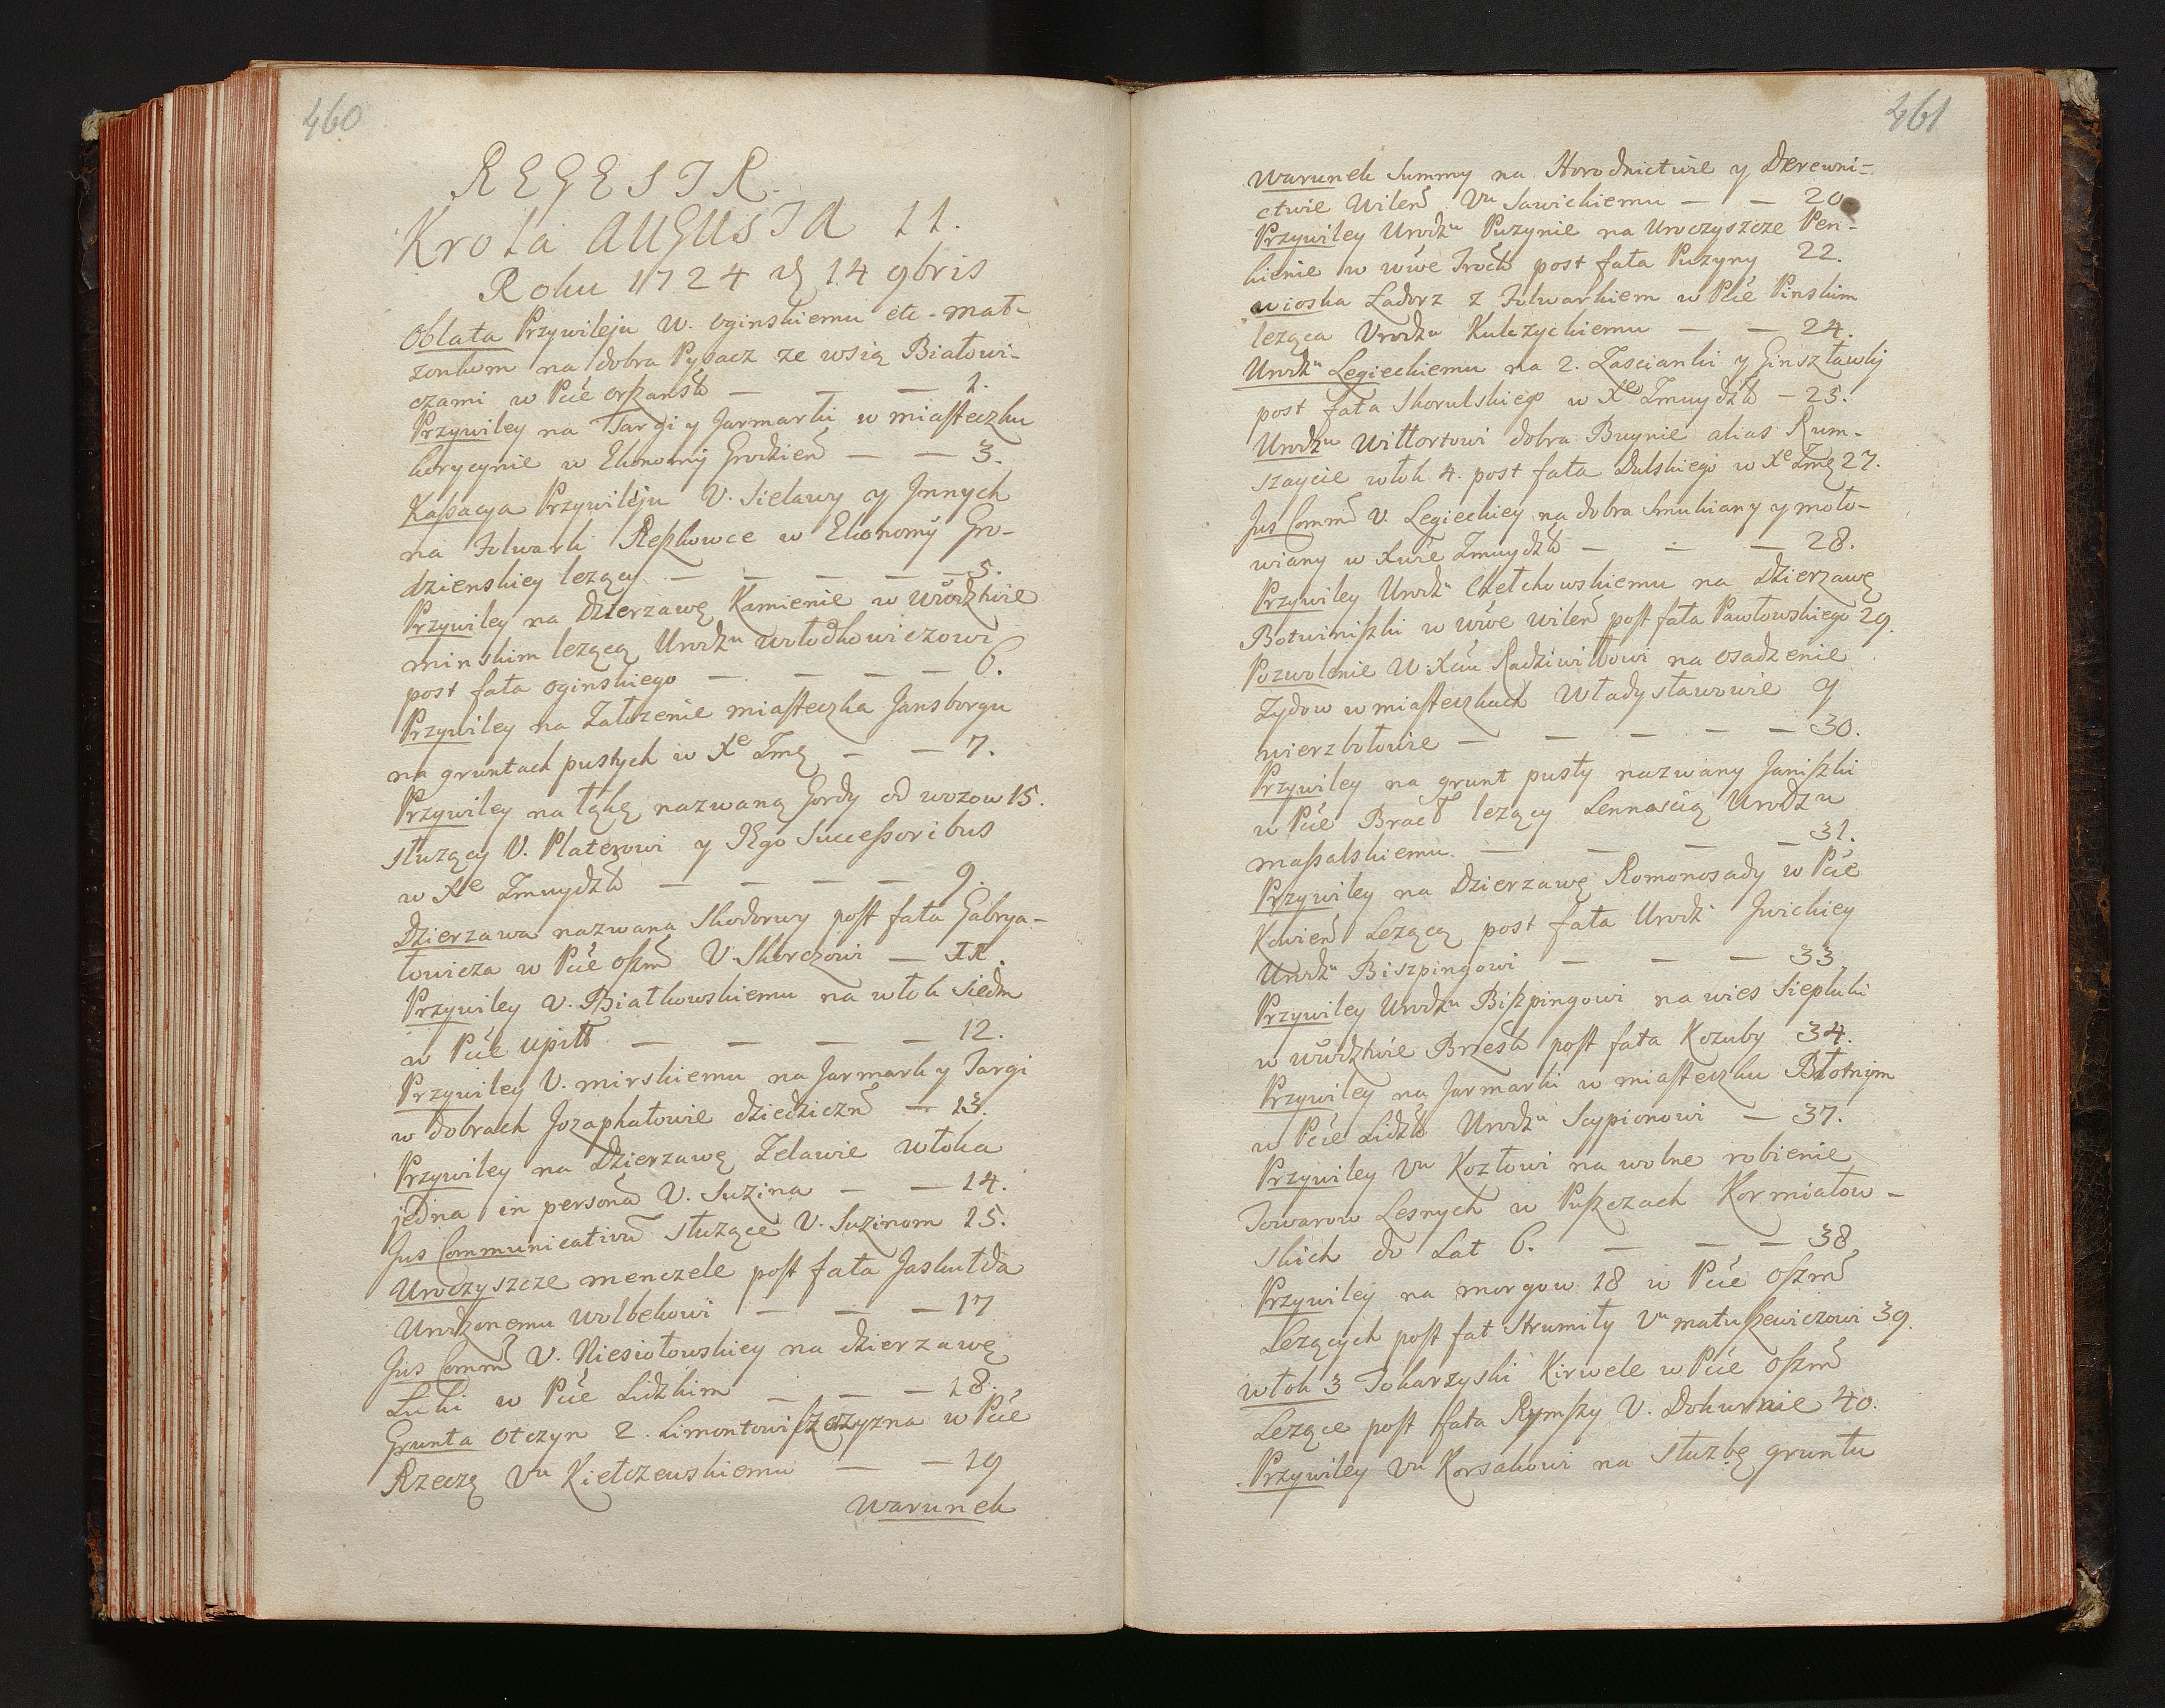 460
REGESTR
Krola AUGUSTA 11.
Roku 1724 d 14 9bris
Oblata Przywileju W. Oginskiemu etc. mał-
zonkom na dobra Pysacz ze wsią Białowi-
czami w Pcie orszansk — — — 1.
Przywiley na Targi y Jarmarki w miasteczku
korycynie w Ekonomÿ Grodzien — — 3.
Kassacya Przywileju V. Sielawy y Jnnych
na Folwark Reszkowce w Ekonomÿ Gro-
dzienskiey lezący — — — — 5.
Przywiley na Dzierzawę Kamienie w wodztwie
minskim lezącą Urodzu wołodkowiczowi
post fata oginskiego — — — — 6.
Przywiley na Załozenie miasteczka Jansborgu
na gruntach pustych w Xe Zmę — — 7.
Przywiley na łąkę nazwaną Gordy od wozow 15.
słuzący V. Platerowi y JEgo Successoribus
w Xe Zmuydzk — — — — 9.
Dzierzawa nazwana Skodorwy post fata Gabrya-
łowicza w Pcie oszm V. Skorczowi — IX.
Przywiley V. Białkowskiemu na włok Siedm
w Pcie upitt — — — — 12.
Przywiley V. mirskiemu na Jarmark y Targi
w dobrach Jozaphatowie dziedziczn — 13.
Przywiley na Dzierzawę Zelawie włoka
jedna in persona V. Suzina — — 14.
Jus Communicativu słuząće V. Suzinom 15.
Uroczyszcze menczele post fata Jaskułda
Urodzonemu wolbekowi — — — 17
Jus Comm V. Niesiołowskiey na dzierzawę
Luki w Pcie Lidzkim — — — 18.
Grunta otczyn 2. Limontowiszczyzna w Pcie
Rzeczę Vu Kiełczewskiemu — — 19
Warunek
461
Warunek Summy na Horodnictwie y Derewni-
ctwie Wilen Vu Sawickiemu — — 20
Przywiley Urodzu Puzynie na Uroczyszcze Pen-
kienie w wwe Trock post fata Puzyny 22.
wioska Ladorz z Folwarkiem w Pcie Pinskim
leząca Urodzu Kulczyckiemu — — 24.
Urodzu Legieckiemu na 2. Zascianki y Ginsztawkÿ
post fata Skorulskiego w Xe Zmuydzk — 25.
Urodzu Wittortowi dobra Buynie alias Rum-
szaycie włok 4. post fata Dulskiego w Xe Zmę 27.
Jus Comm V. Legieckiey na dobra Smukiany y moło-
wiany w Xwie Zmuydzk — — — 28.
Przywiley Urodzu Chełchowskiemu na Dzierzawę
Botwiniszki w wwe wilen post fata Pawłowskiego 29.
Pozwolenie W. Xciu Radziwiłłowi na osadzenie
Zydow w miasteczkach Władysławowie y
wierzbołowie — — — — — 30.
Przywiley na grunt pusty nazwany Janiszki
w Pcie Bracł lezący Lennością Urodzu
massalskiemu — — — — 31.
Przywiley na Dzierzawę Romonosady w Pcie
Kowien Lezącą post fata Urodz Jwickiey
Urodzu Biszpingowi — — — 33
Przywiley Urodzu Biszpingowi na wies Siepluki
w wodztwie Brzesk post fata Kozuby 34.
Przywiley na Jarmarki w miasteczku Błotnym
w Pcie Lidzk Urodzu Scypionowi — 37.
Przywiley Vu Kozłowi na wolne robienie
Towarow Lesnych w Puszczach Kormiałow-
skich do Lat 6. — — — 38
Przywiley na morgow 18 w Pcie oszm
Lezących post fat Strumiły Vu matuszewiczowi 39.
włok 3 Tokarzyski Kirwele w Pcie oszm
Lezące post fata Rymszy V. Dokurnie 40.
Przywiley Vu Korsakowi na słuzbę gruntu